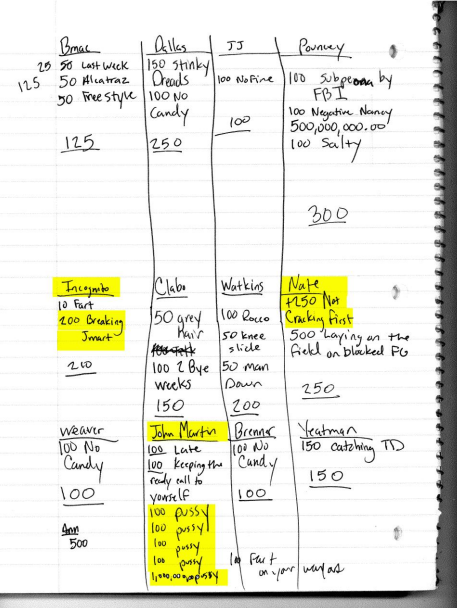 Bmac
25 50 Last Week
125 50 Alcatraz
50 Freestyle
125
Dallas
150 stinky
Dreads
100 No
Candy
250
JJ
100 No Fine
100
Pouncey
100 Subpeona by
FBI
100 Negative Nancy
500,000,000.00
100 Salty
300
Incognito
10 Fart
200 Breaking
Jmart
200
Clabo
50 grey
hair
100 2 Bye
weeks
150
Watkins
100 Rocco
50 knee
slide
50 man
Down
200
Nate
+250 Not
Cracking first
500 Laying on the
field on blocked FG
250
Weaver
100 No
Candy
100
Ann
500
John Martin
100 Late
100 Keeping the
ready call to
yourself
100 pussy
100 pussy
100 pussy
100 pussy
Brenner
100 No
Candy
100
100 Fart
on your way
Yeatman
150 catching TD
150